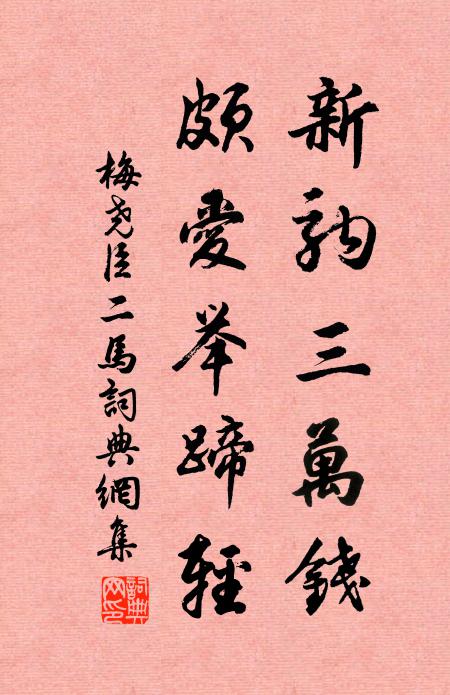 新駒三萬錢
頗愛举蹄輕
梅尧臣二馬詞典網集
詞典
网印